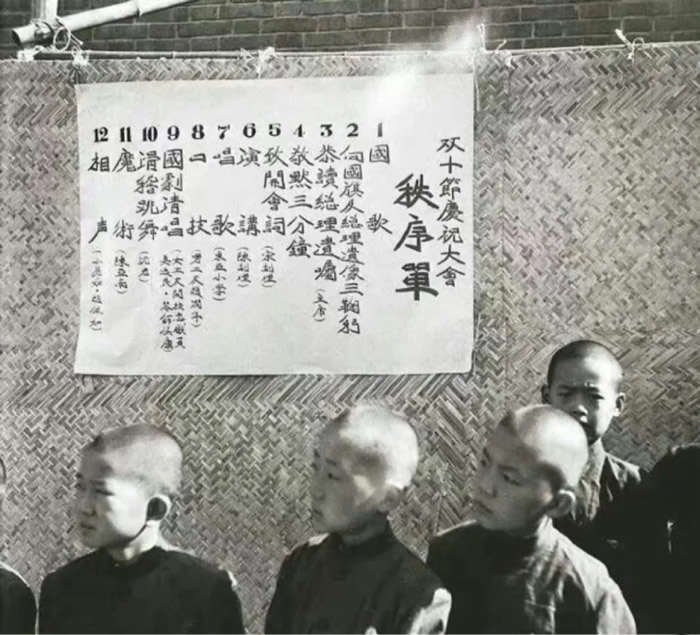 双十節慶祝大會
秩序單
1 國歌
2 向國旗及總理遺像三鞠躬
3 恭讀總理遺囑（主席）
4 敬默三分鐘
5 致開會詞
6 演講
7 唱歌（東亞小學）
8 口技
9 國劇清唱
10 滑稽跳舞
11 魔術
12 相声